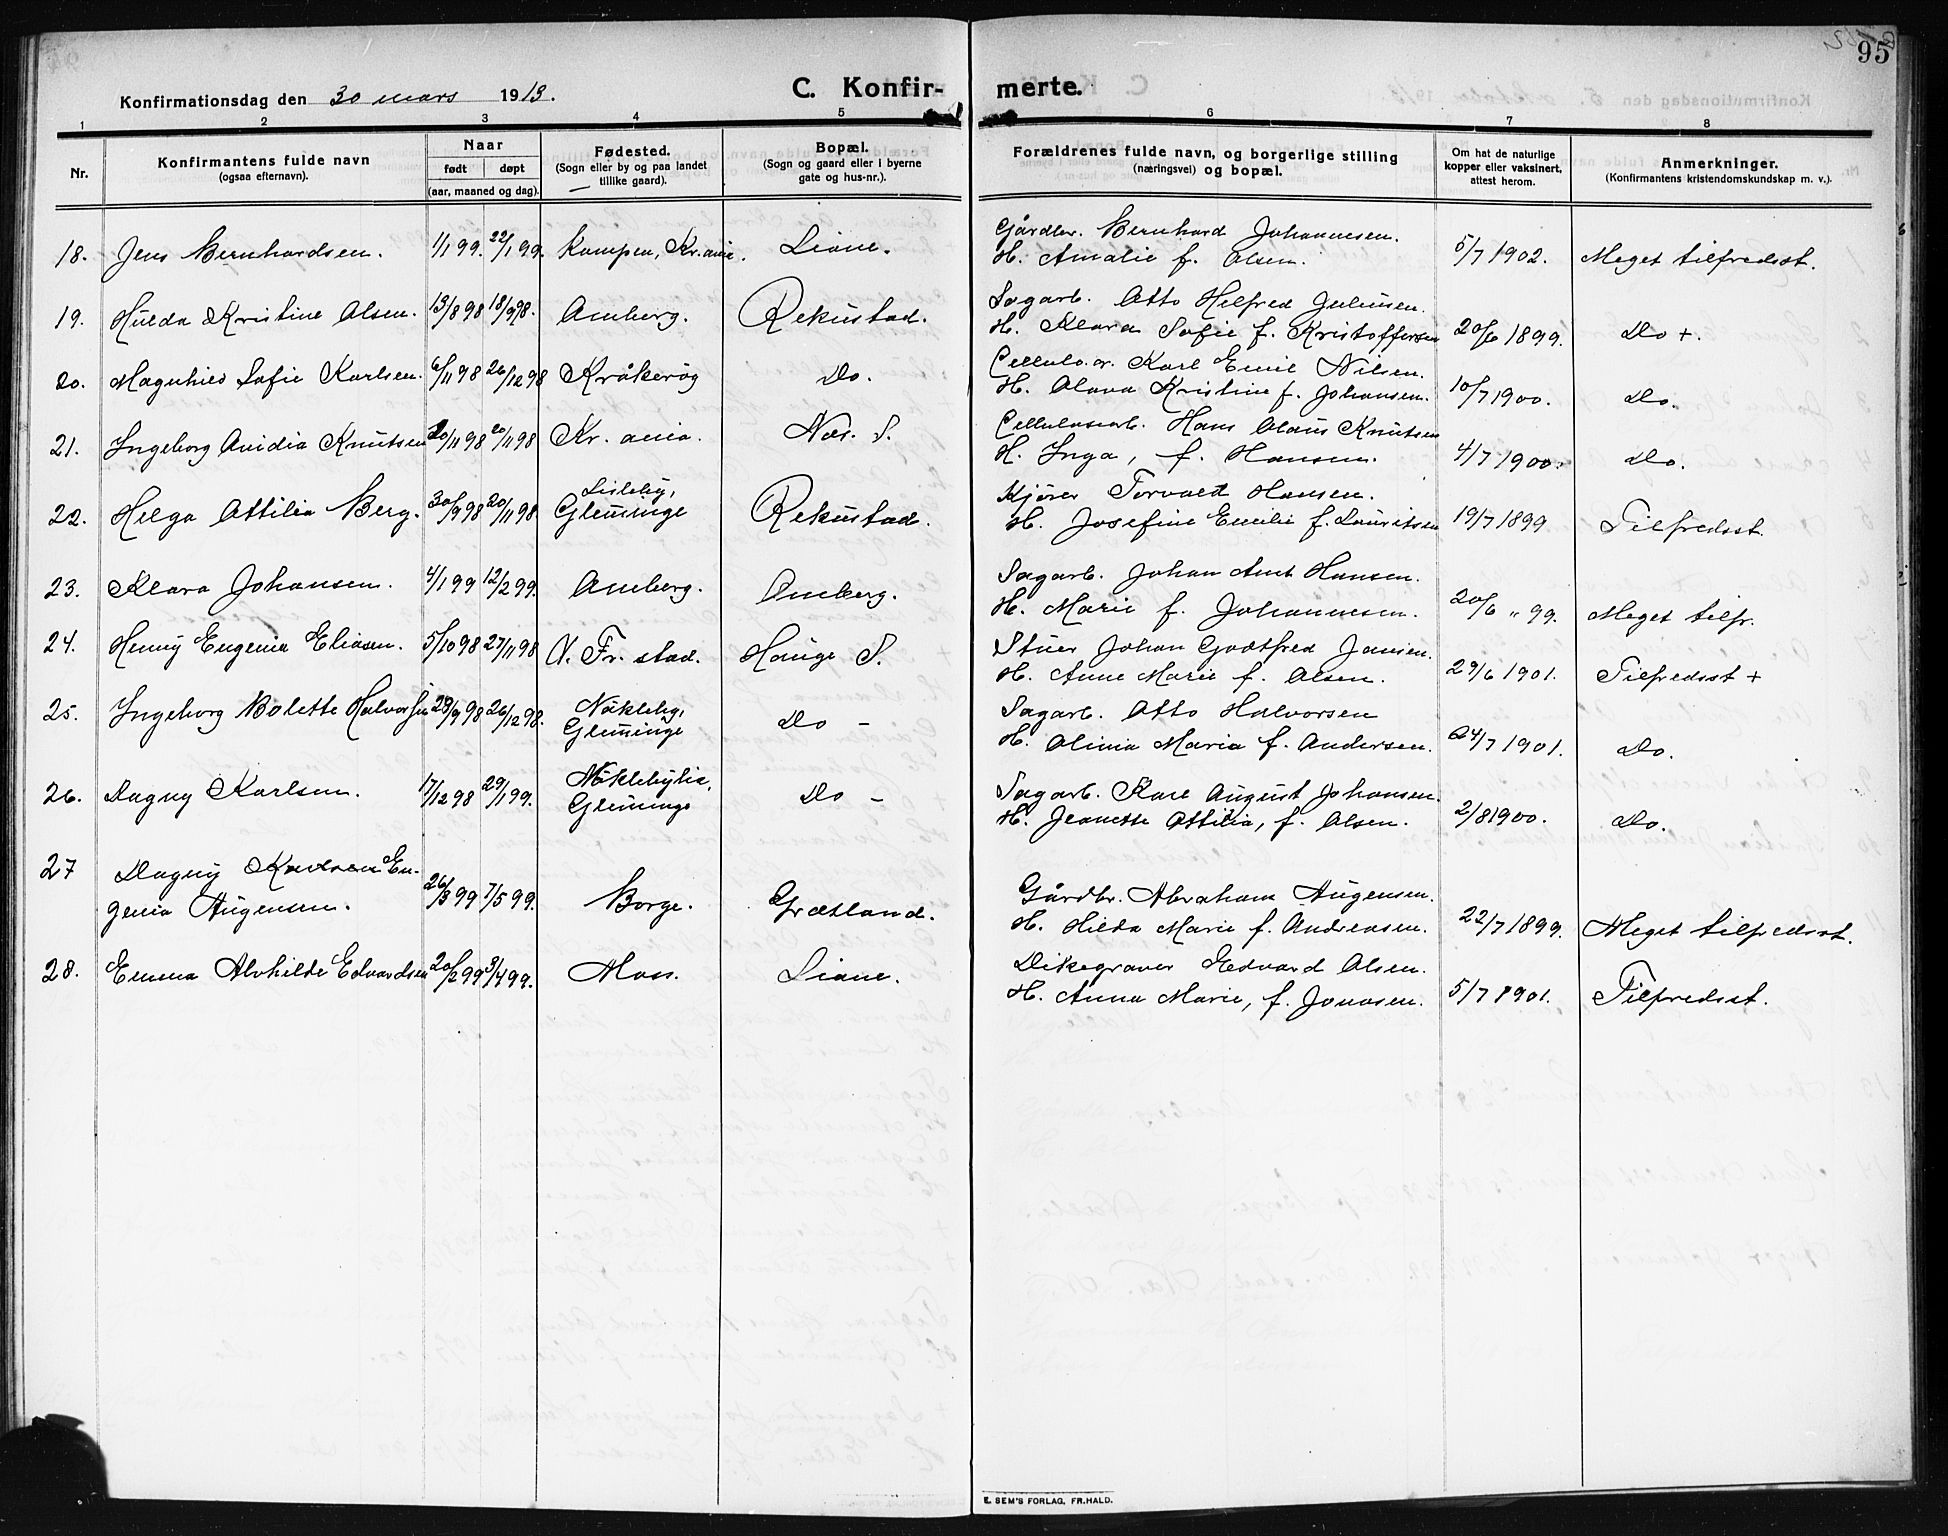 95
Konfirmationsdag den 30 mars 1913.
C. Konfir-
merte.
1 2 3 4 5 6 7 8
Nr.
Konfirmantens fulde navn
(ogsaa efternavn).
Naar
født døpt
(aar, maaned og dag).
Fødested.
(Sogn eller by og paa landet
tillike gaard).
Bopæl.
(Sogn og gaard eller i byerne
gate og hus-nr.).
Forældrenes fulde navn, og borgerlige stilling
(næringsvei) og bopæl.
Om hat de naturlige
kopper eller vaksinert,
attest herom.
Anmerkninger.
(Konfirmantens kristendomskundskap m. v.).
18. Jens Bernhardsen. 1/1 99. 22/1 99. Kampen, Kr.ania. Liane.
Gårdbr. Bernhard Johannesen.
H. Amalie f. Olsen. 5/7 1902. Meget tilfredsst.
19. Hulda Kristine Olsen. 13/8 98 18/9 98. Omberg. Rekustad.
Sagarb. Otto Hilfred Juliusen.
H. Klara Sofie f. Kristoffersen 20/6 1899. Do +.
20. Maguhild Sofie Karlsen. 6/11 98 26/12 98 Kråkerög Do.
Cellulo. ar. Karl Emil Nilsen.
H. Olava Kristine f. Johansen. 10/7 1900. Do.
21. Ingeborg Ovidia Knutsen 20/11 98 20/11 98 Kr. ania. Næs. S.
Cellulosearb. Hans Olaus Knutsen
H. Inga, f. Hansen. 4/7 1900. Do.
22. Helga Ottilia Berg. 30/9 98 20/11 98 Lisleby,
Glemminge Rekustad.
Kjører Torvald Hansen.
H. Josefine Emilie f. Lauritsen 19/7 1899 Tilfredsst.
23. Klara Johansen. 4/1 99 12/2 99. Omberg. Omberg.
Sagarb. Johan Amt Hansen.
H. Marie f. Johannesen. 20/6 " 99. Meget tilfr.
24. Henny Eugenia Eliasen. 5/10 98 27/11 98 V. Fr. stad. Hauge S.
Stuer Johan Godtfred Jansen.
H. Anne Marie f. Olsen. 29/6 1901. Tilfredsst +
25. Ingeborg Bolette Halvorsen 28/9 98 26/12 98. Nökleby,
Glemminge Do -
Sagarb. Otto Halvorsen
H. Olivia Maria f. Andersen. 24/7 1901. Do.
26. Dagny Karlsen. 17/12 98 29/1 99. Nöklebylia,
Glemminge Do -
Sagarb. Karl August Johansen.
H. Jeanette Ottilia, f. Olsen. 2/8 1900. Do.
27 Dagny Karlsen Eu-
genia Augensen. 26/3 99 7/5 99. Borge. Grætland.
Gårdbr. Abraham Augensen.
H. Hilda Marie f. Andreasen. 22/7 1899. Meget tilfredsst.
28. Emma Alvhilde Edvardsen 20/2 99 3/4 99. Moss. Liane.
Dikegraver Edvard Olsen.
H. Anna Marie, f. Jonasen. 5/7 1901. Tilfredsst.
E. SEM'S FORLAG, FR.HALD.